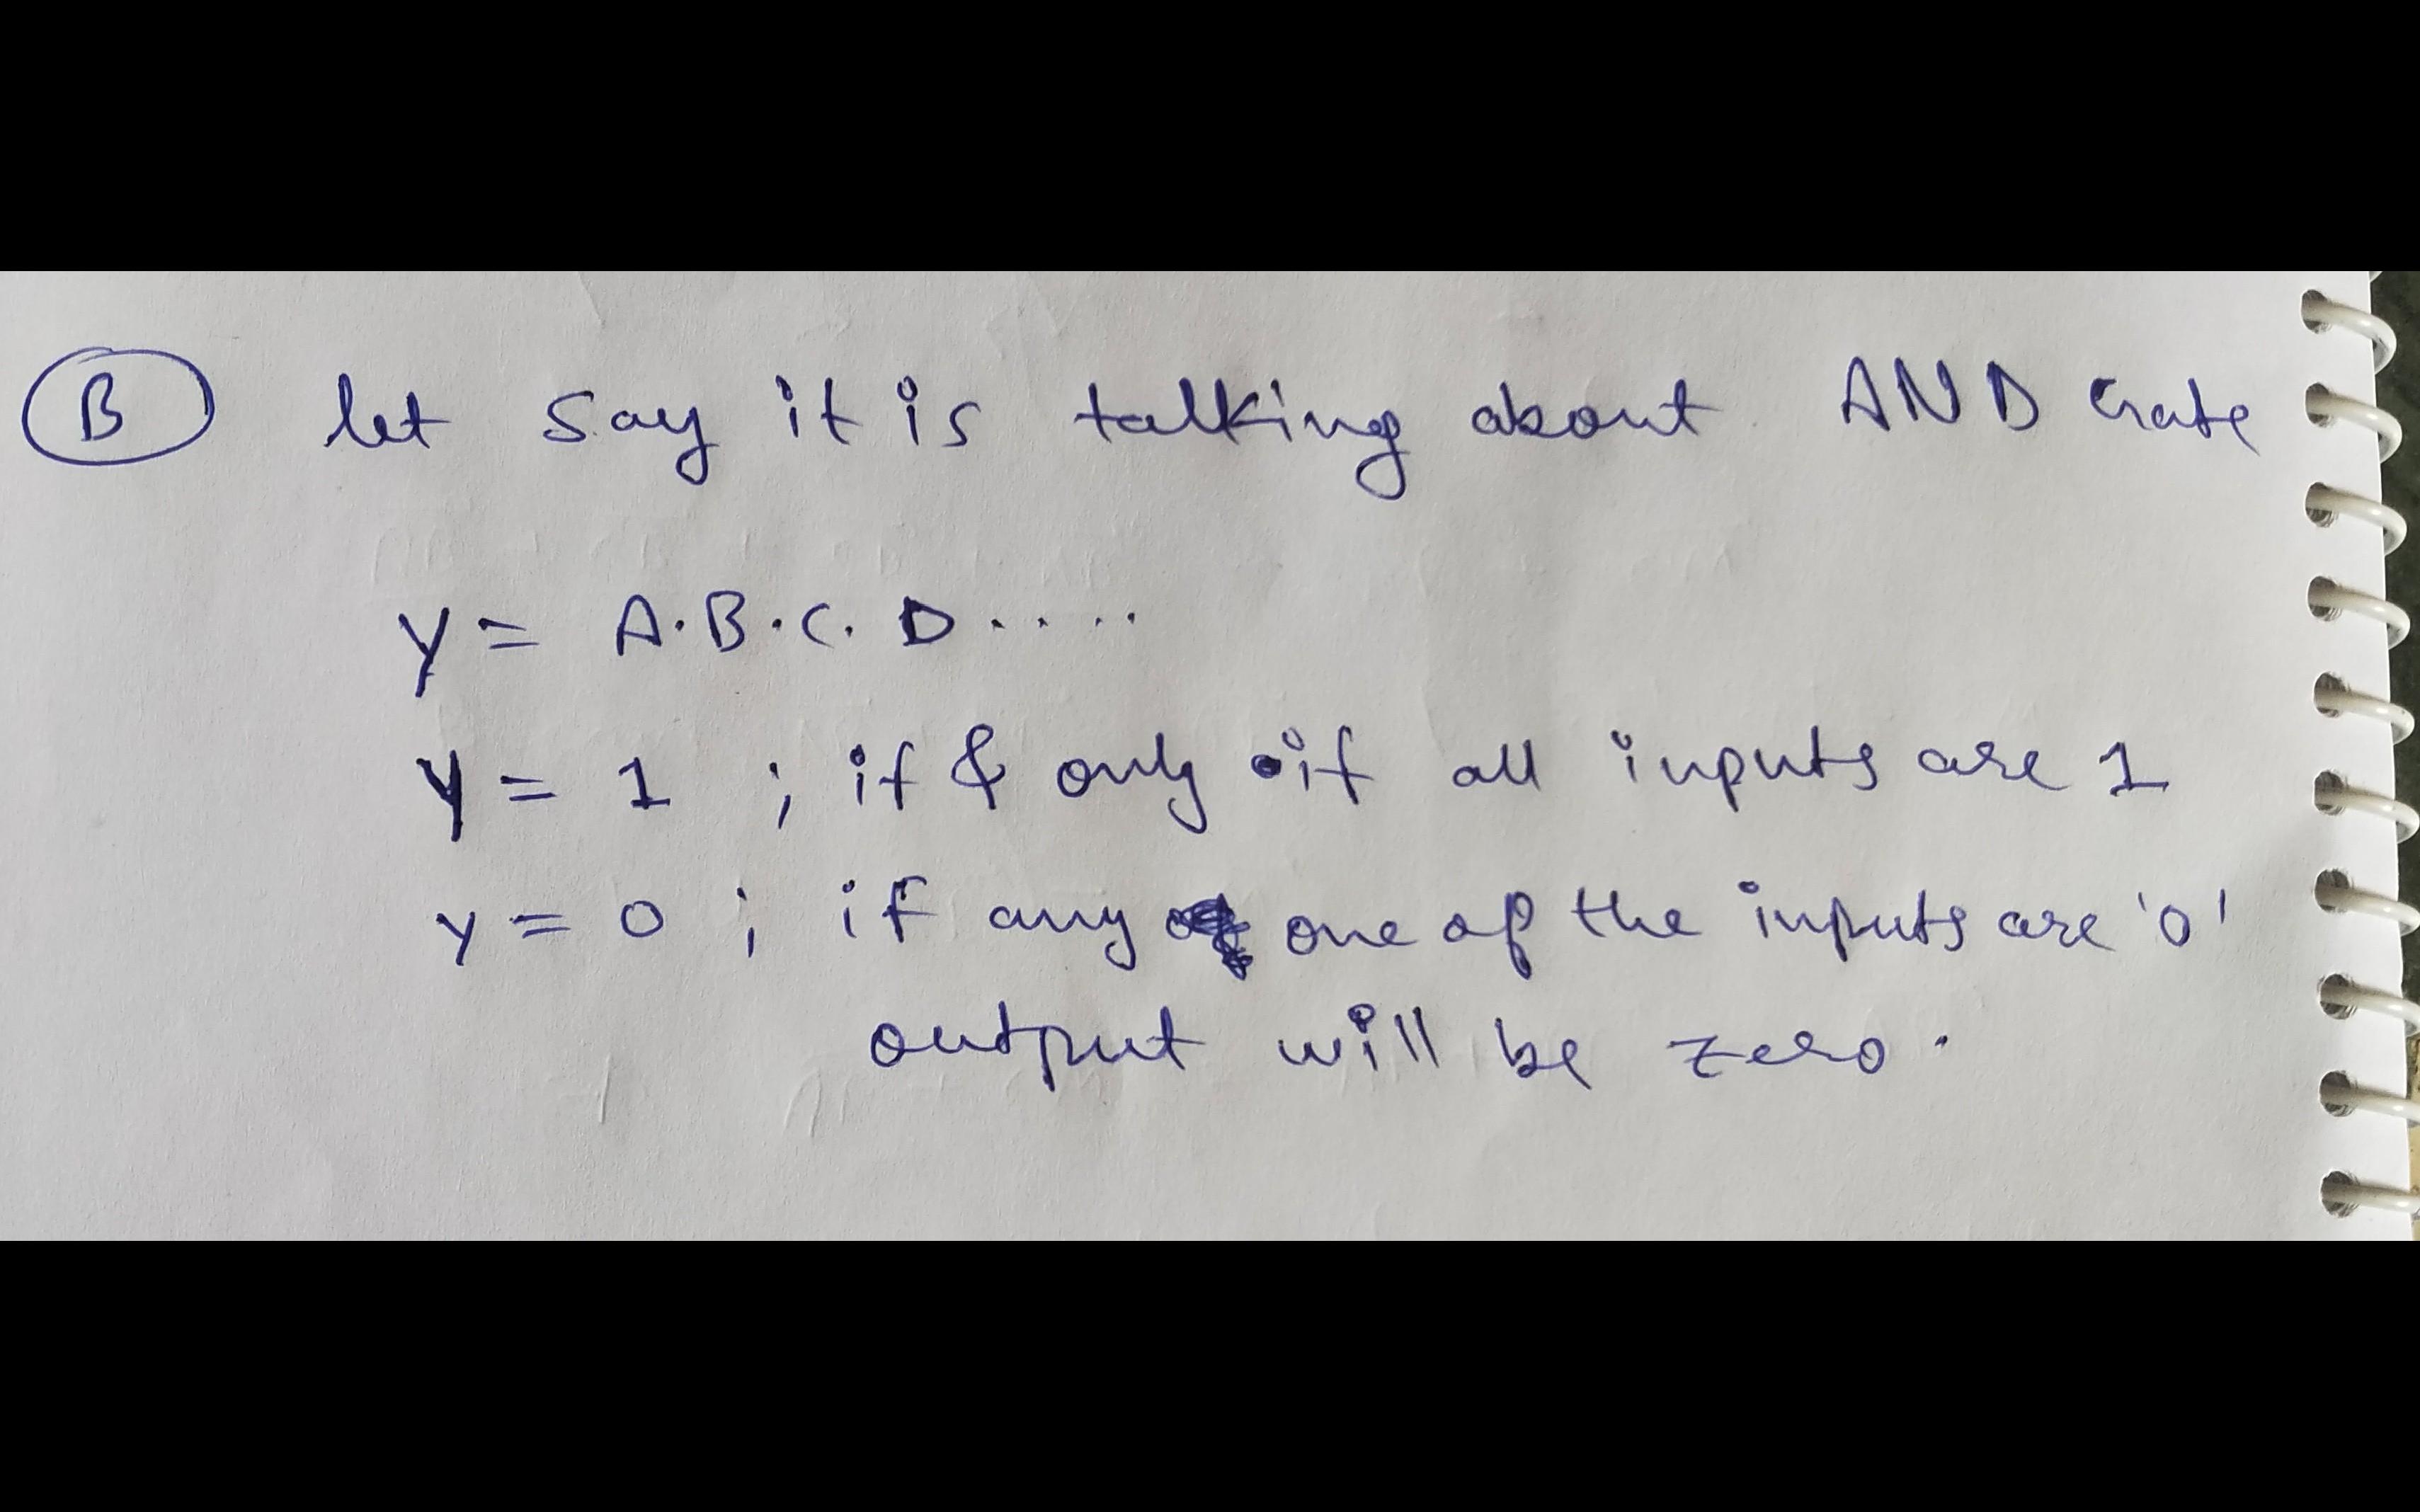 B let say it is talking about AND Gate
Y = A.B.C.D.....
Y = 1 ; if & only if all inputs are 1
Y = 0 ; if any one of the inputs are '0'
output will be zero.